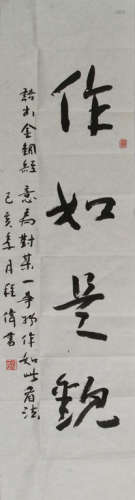 作如是觀
語出金剛經 意為對某一事物作如此看法
己亥年月程偉書